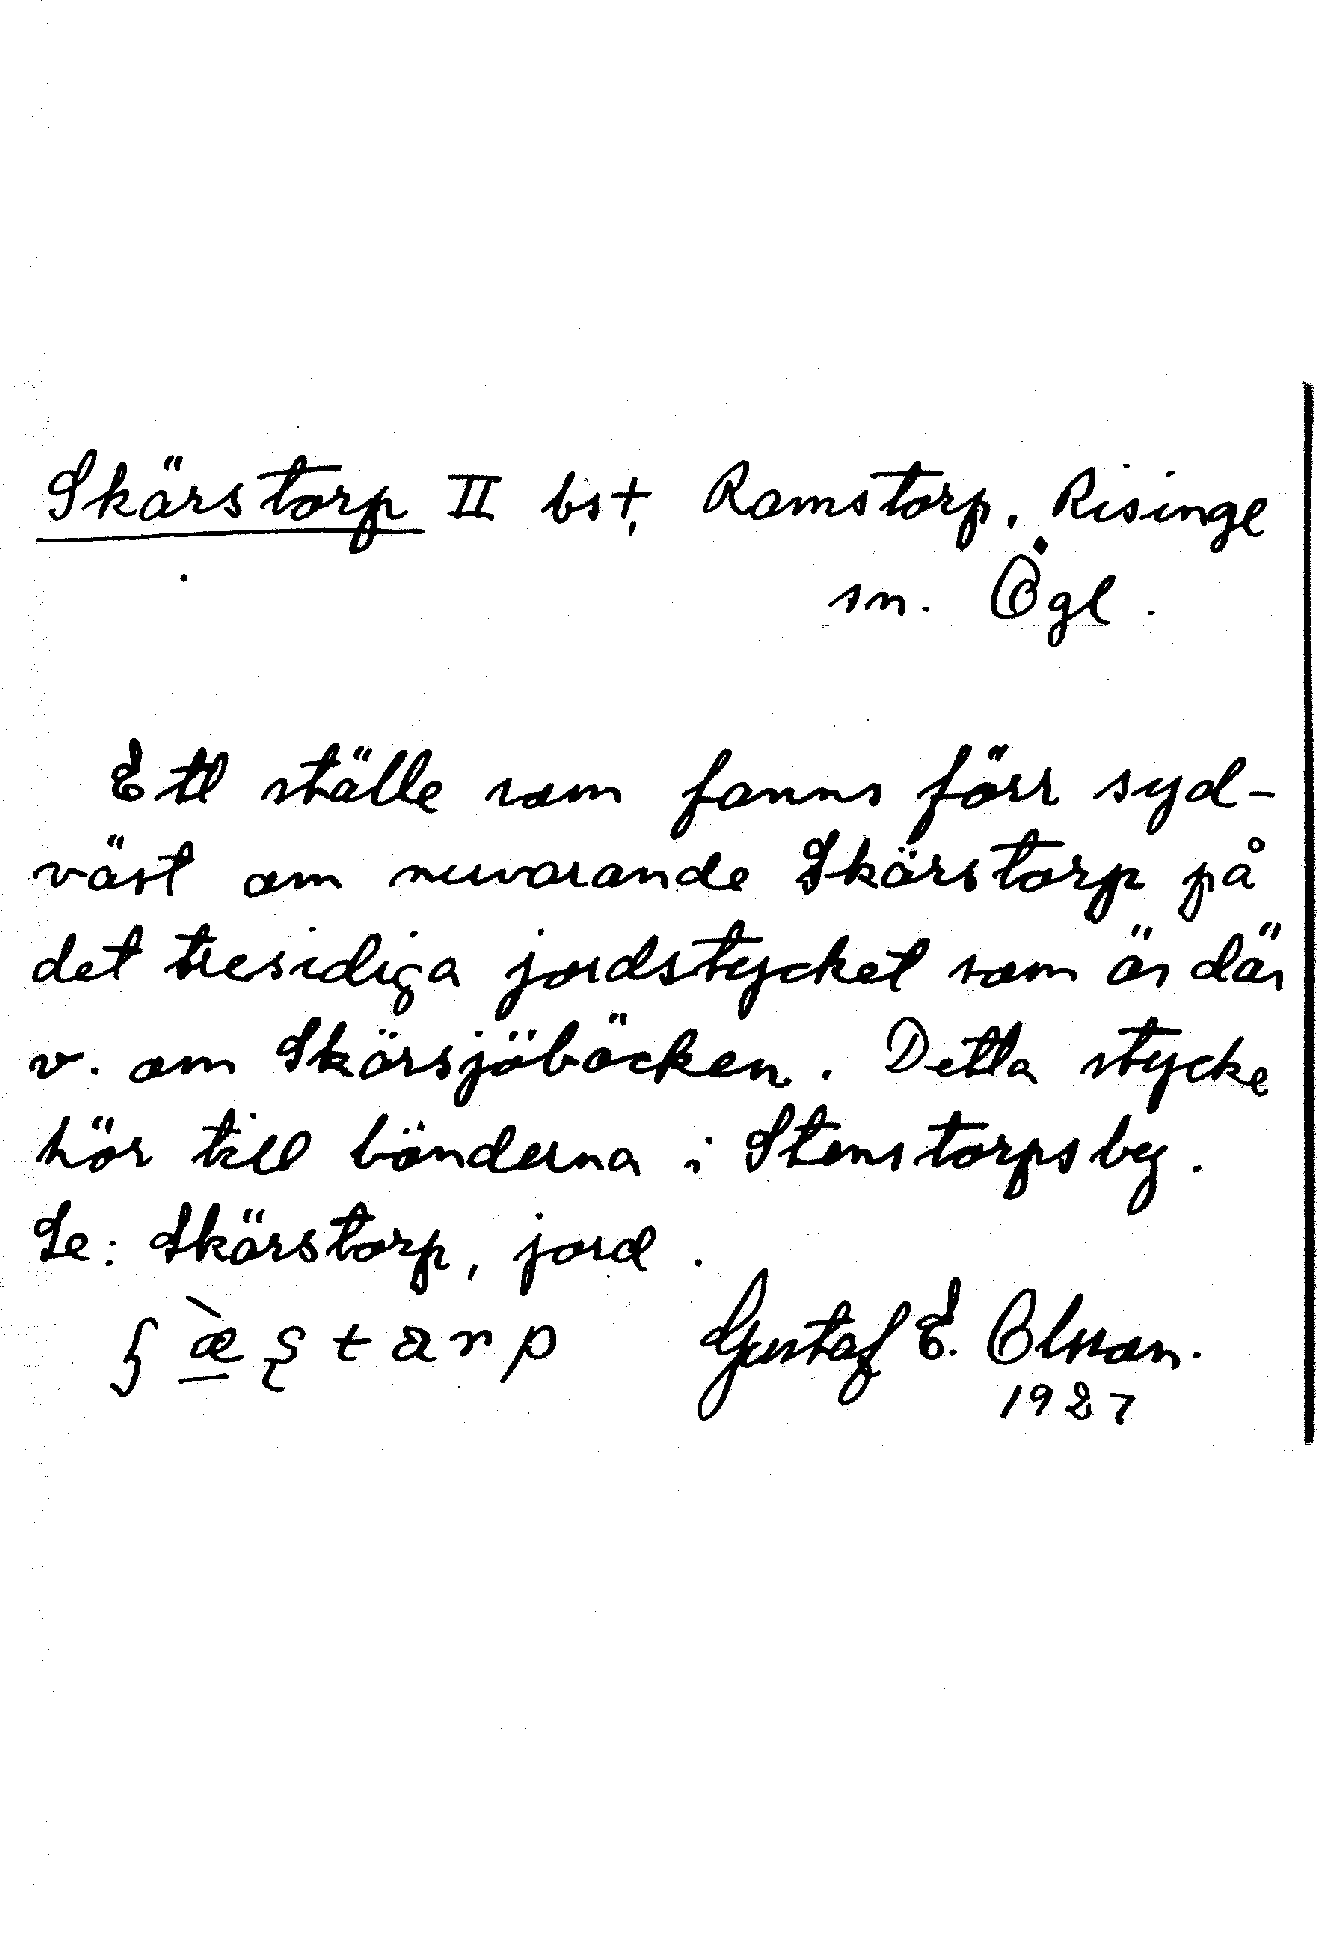 Skärstorp II bst, Ramstorp. Risinge
sn. Ögl.
Ett ställe som fanns förr syd-
väst om nuvarande Skärstorp på
det tresidiga jordstycket som är där
v. om Skärsjöbäcken. Detta stycke
hör till bönderna i Stenstorps by.
Se: Skärstorp, jord.
Gustaf E. Olsson.
1927